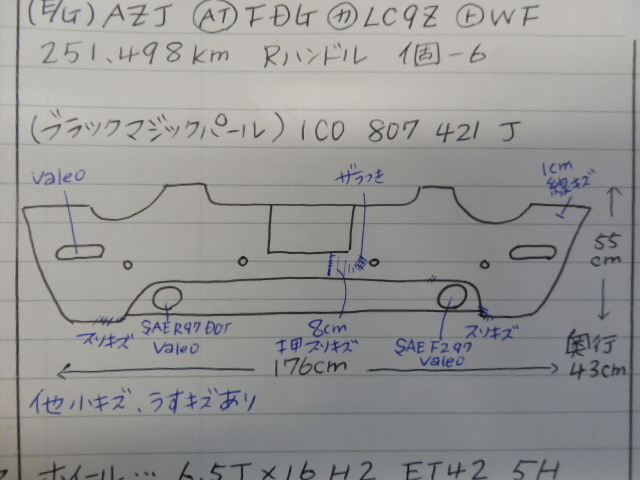 (E/G) AZJ (AT) FDG (カ) LC9Z (ト) WF
251.498km Rハンドル 個-6
(ブラックマジックパール) 1C0 807 421 J
valeo
ザラつき
1cm
線キズ
55
cm
スリキズ
SAE R97 DOT
valeo
8cm
スリキズ
SAE F2 97
valeo
スリキズ
奥行
43cm
176cm
他 小キズ、うすキズあり
ホイール… 6.5J×16 H2 ET42 5H